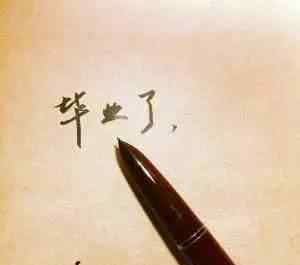 毕业了,